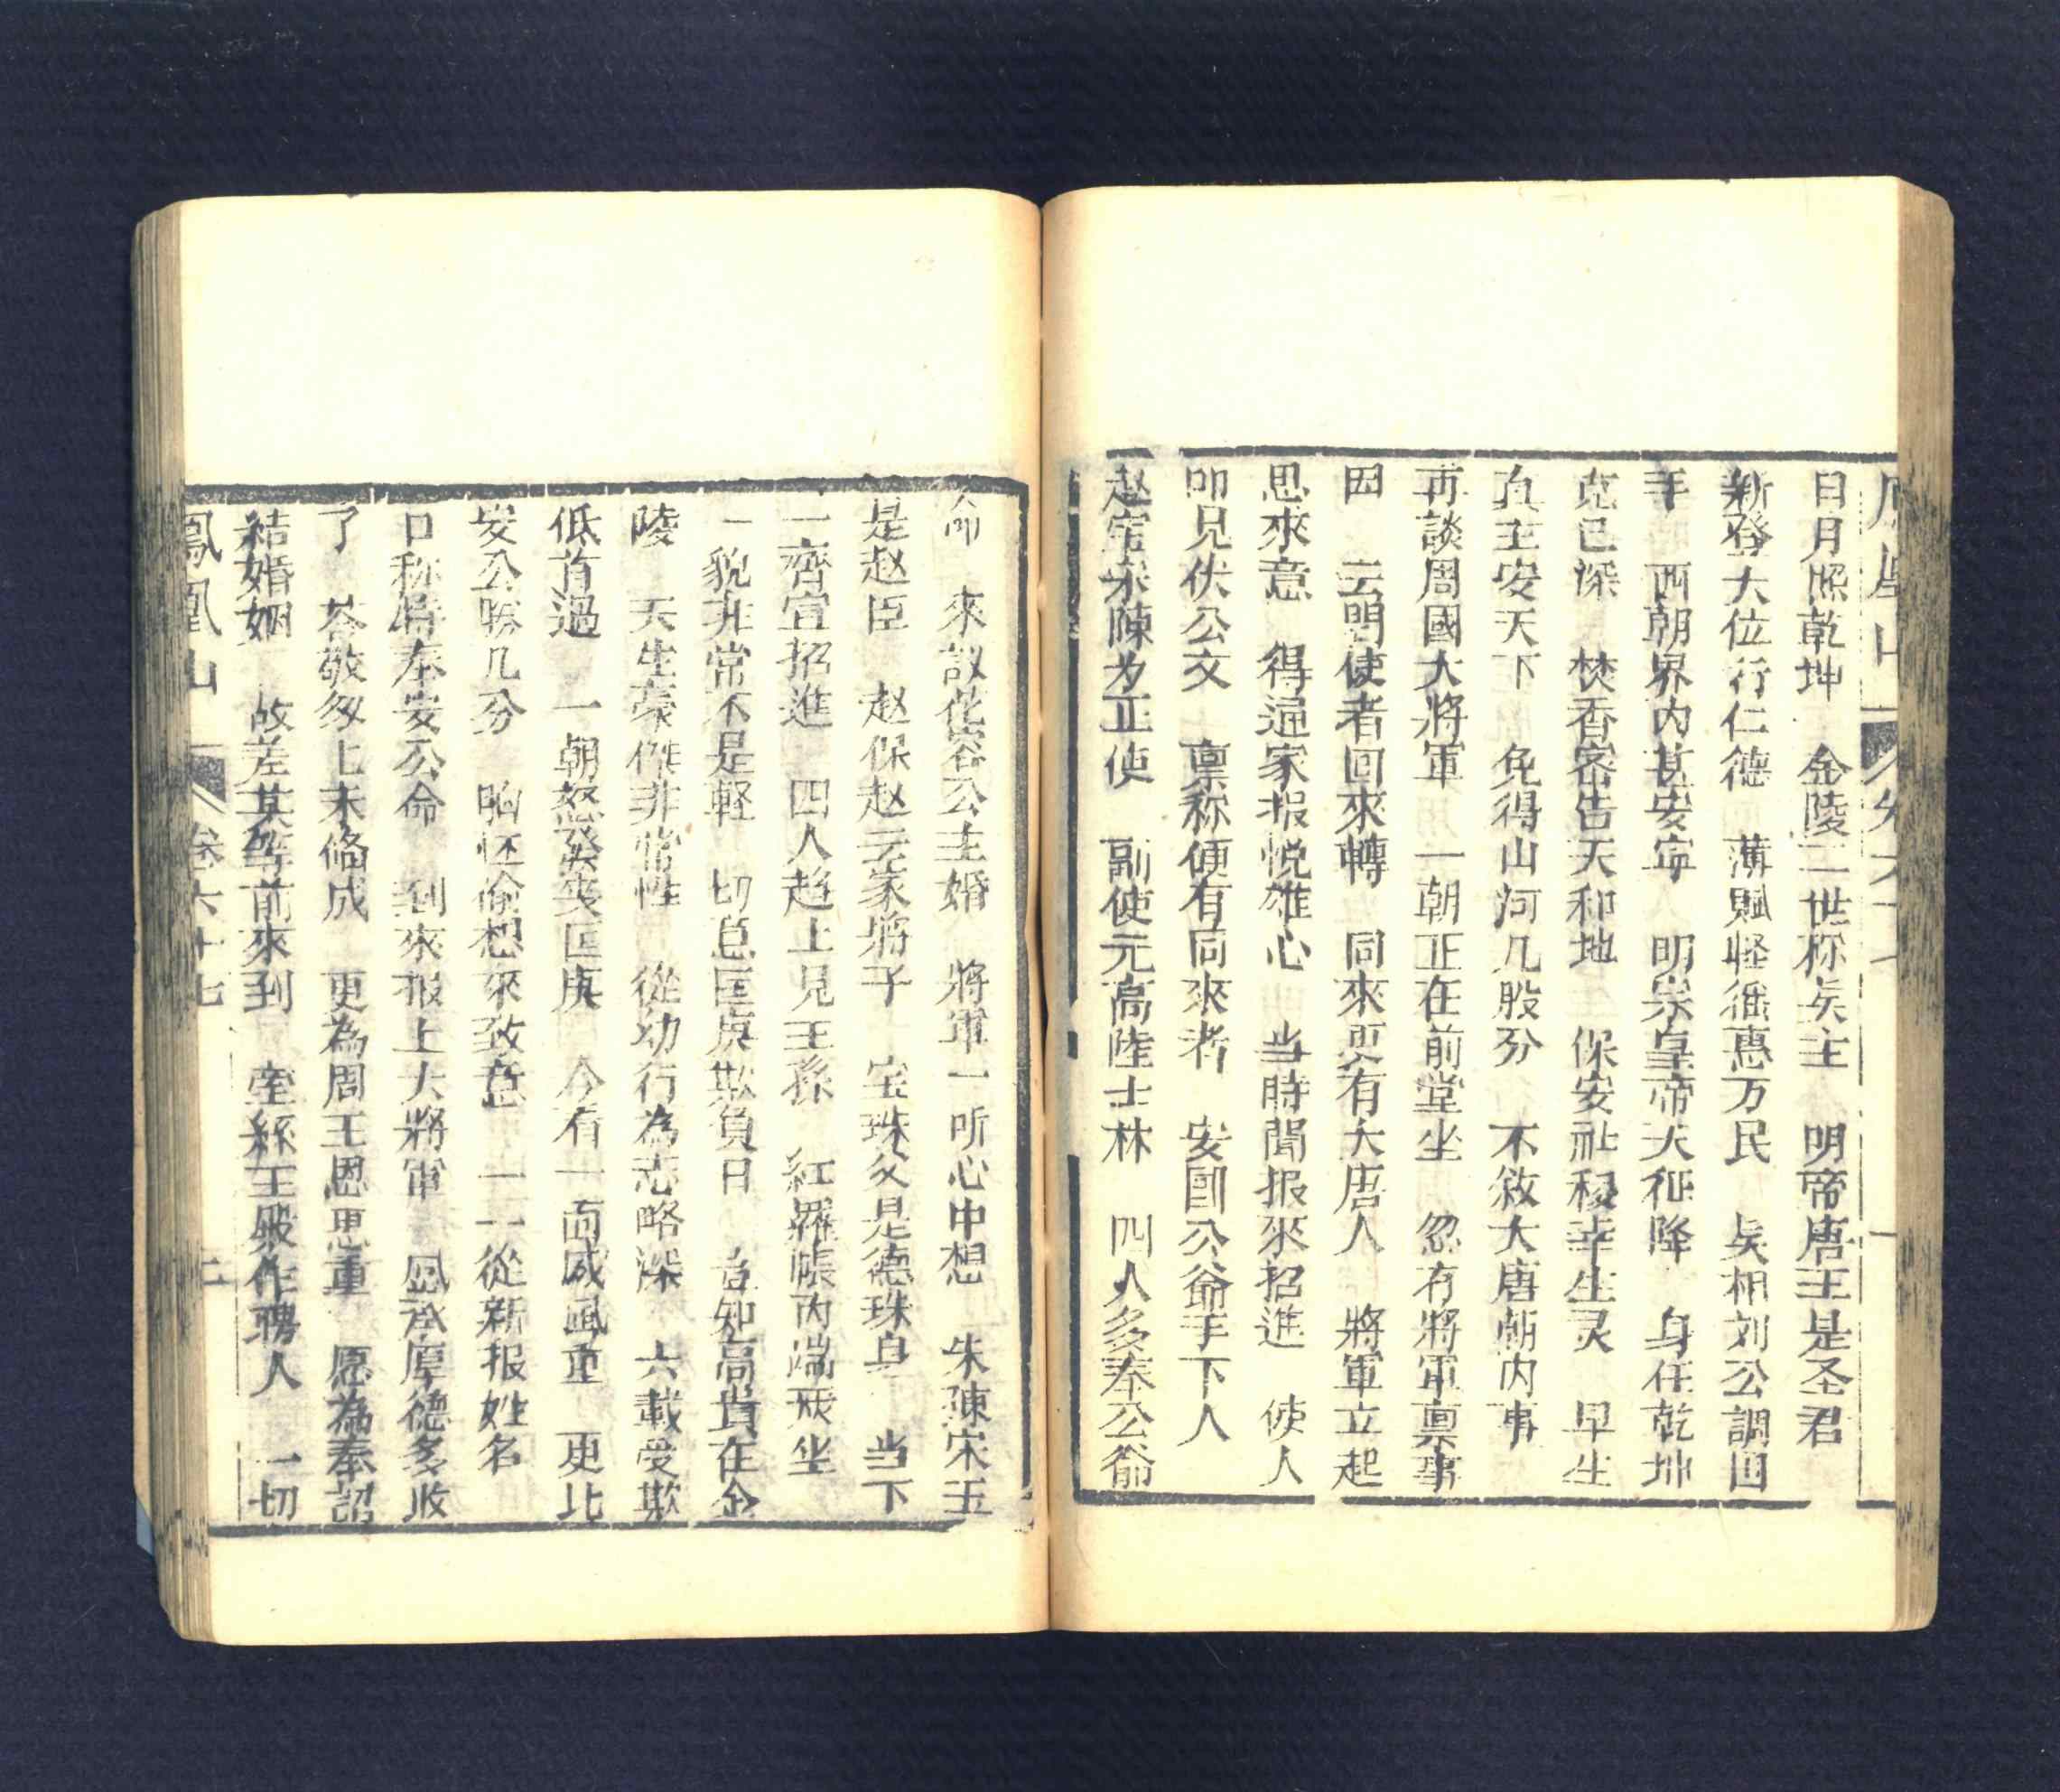 日月照乾坤　金陵二世称矦主　明帝唐王是圣君
新登大位行仁德　薄賦轻徭惠万民　矦相刘公調回
手　西朝界内甚安宁　明崇皇帝天征降　身任乾坤
克已深　焚香密告天和地　保安社稷幸生灵　早生
真主安天下　免得山河几股分　不敘大唐朝内事
再談周國大將軍　一朝正在前堂坐　忽有將軍禀事
因　云門使者回來轉　同來更有大唐人　將軍立起
思來意　得通家报悦雄心　当時聞报來招進　使人
叩見伏公文　禀称便有同來者　安國公爺手下人
赵宝宋陳为正使　副使元高陸士林　四人多奉公爺
命　來議花容公主婚　將軍一听心中想　朱陳宋玉
是赵臣　赵保赵云家將子　宝珠父是德珠身　当下
一齊宣招進　四人趋上見王孫　紅羅帳内端然坐
一貌非常不是軽　切意匡庚欺負日　豈知高貴在金
陵　天生豪傑非常性　從幼行為志略深　六載受欺
低首過　一朝怒發奕匡庚　今有一面威風重　更比
安公勝几分　响怀愉想來致意　一一從新报姓名
口称特奉安公命　到來报上大將軍　恩承厚德多收
了　荅敬多上未偹成　更為周王恩思重　愿為奉詔
結婚姻　故差某等前來到　牵絲王殿作聘人　一切
鳳凰山　卷六十七　二